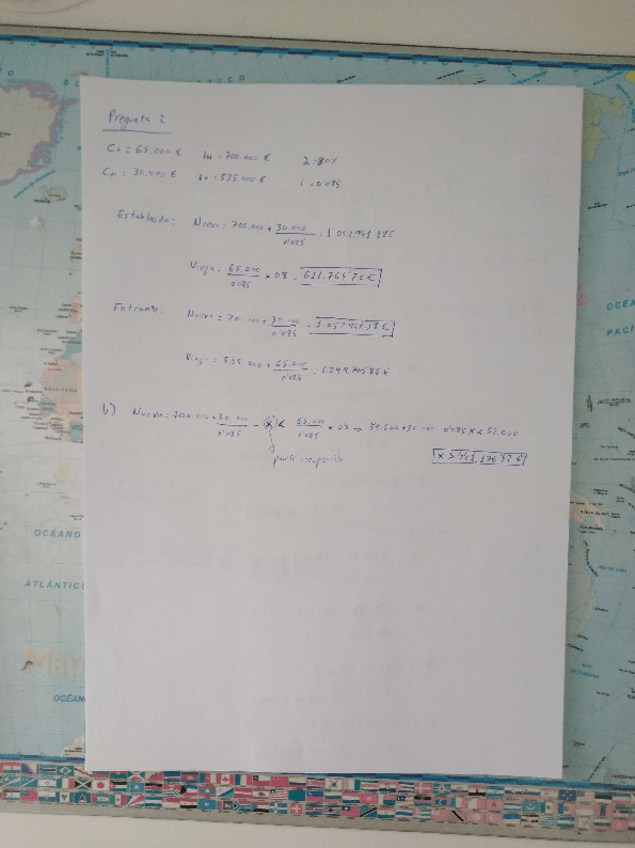 Pregunta 2
Cv = 65.000 € IN = 700.000 €
CN = 30.000 € Iv = 535.000 € i = 0'085
Establecida: Nueva = 700.000 + 30.000 / 0'085 = 1.052.941'18 €
Vieja = 65.000 / 0'085 × 0'8 = 611.764'70 €
Entrante: Nueva = 700.000 + 30.000 / 0'085 = 1.052.941'18 €
Vieja = 535.000 + 65.000 / 0'085 = 1.299.705'88 €
b) Nueva = 700.000 + 30.000 / 0'085 - x < 65.000 / 0'085 · 0'8 → 59.500 + 30.000 - 0'085 x < 52.000
x > 441.176'47 €
OCÉANO
ATLÁNTICO
Map
OCÉAN
OCÉA
PACÍF